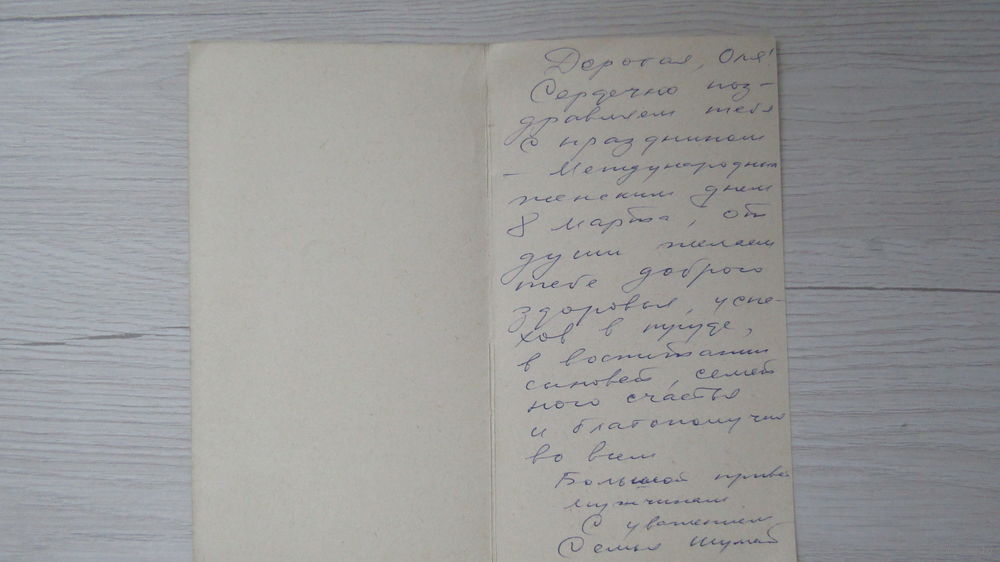 Дорогая, Оля!
Сердечно поз-
дравляем тебя
с праздником
- Международным
женским днем
8 марта, от
души желаем
тебе доброго
здоровья, успе-
хов в труде,
в воспитании
сыновей, семей
ного счастья
и благополучия
во всем
Большой привет
мужчинам
С уважением
Семья